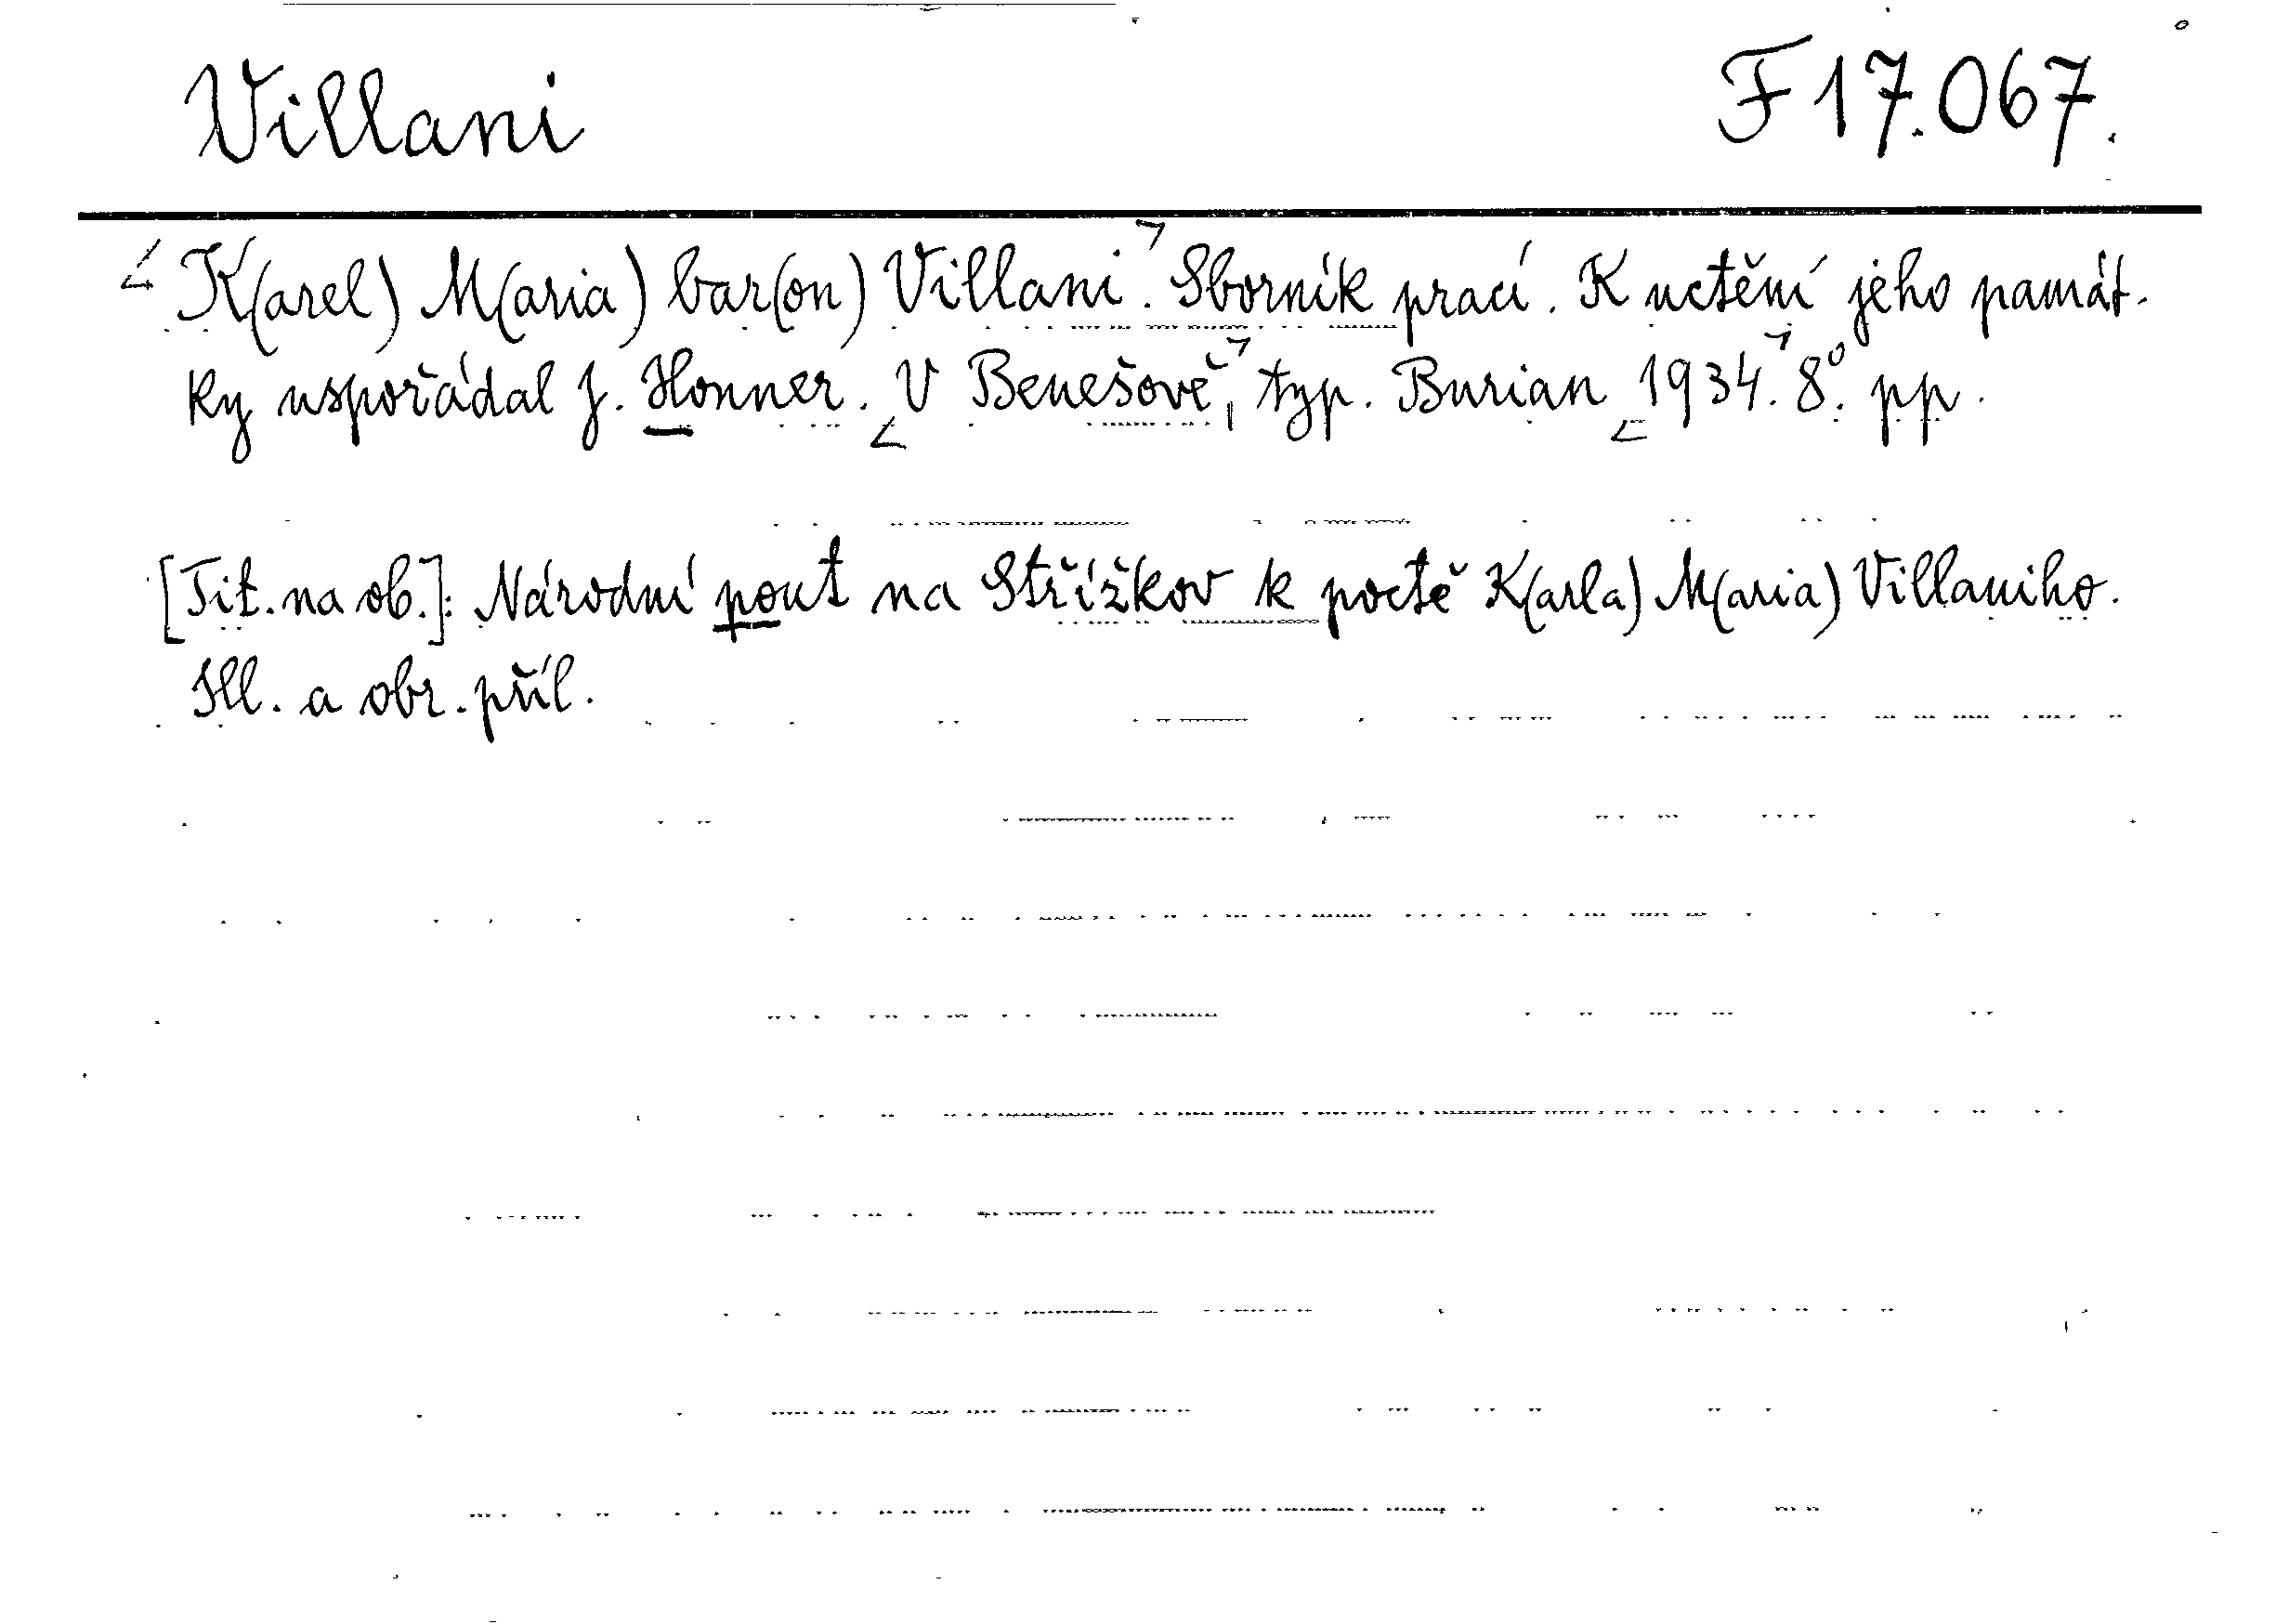 Villani F 17.067.
K(arel) M(aria) bar(on) Villani. Sborník prací. K uctění jeho památ-
ky uspořádal J. Honner. V Benešově, typ. Burian 1934. 8°. pp.
[Tit. na ob.]: Národní pouť na Střížkov k poctě K(arla) M(aria) Villaniho.
Ill. a obr. příl.